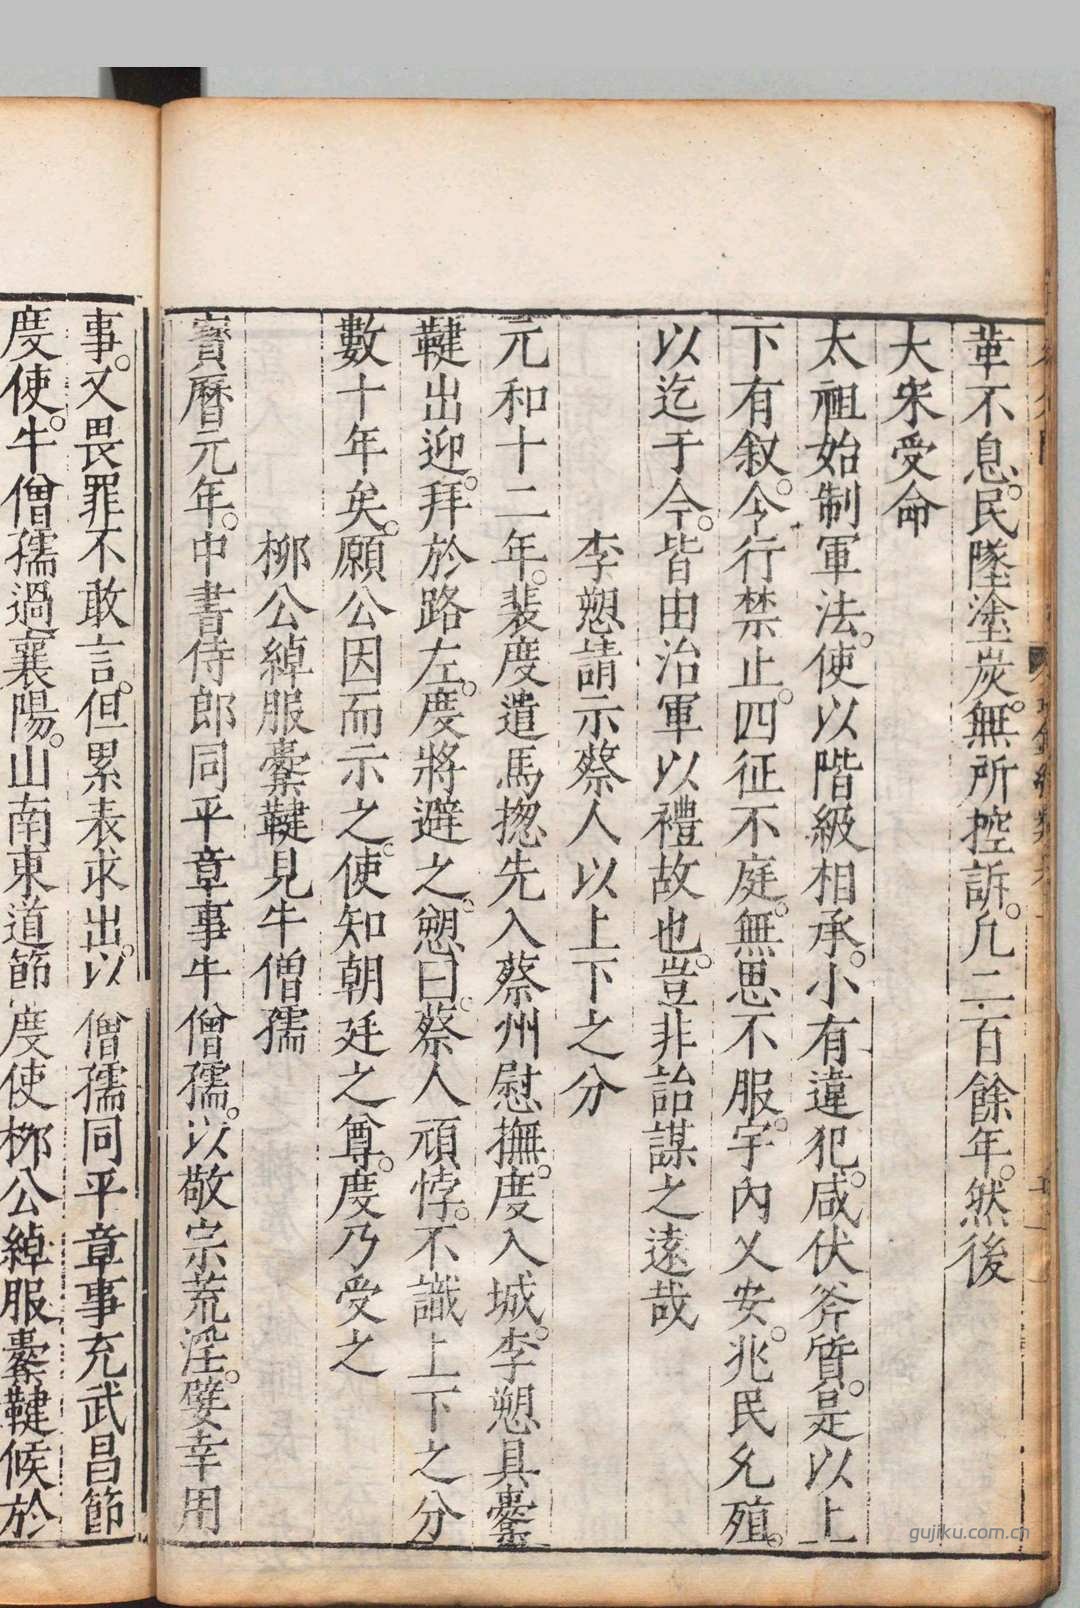 革不息。民墜塗炭。無所控訴。凢二百餘年。然後
大宋受命
太祖始制軍法。使以階級相承。小有違犯。咸伏斧質。是以上
下有叙。令行禁止。四征不庭。無思不服。宇內乂安。兆民允殖。
以迄于今。皆由治軍以禮故也。豈非詒謀之遠哉
李愬請示蔡人以上下之分
元和十二年。裴度遣馬揔先入蔡州慰撫。度入城。李愬具櫜
鞬出迎。拜於路左。度將避之。愬曰。蔡人頑悖。不識上下之分
數十年矣。願公因而示之。使知朝廷之尊。度乃受之
柳公綽服櫜鞬見牛僧孺
寶曆元年。中書侍郎同平章事牛僧孺。以敬宗荒淫。嬖幸用
事。又畏罪不敢言。但累表求出。以僧孺同平章事充武昌節
度使。牛僧孺過襄陽。山南東道節度使柳公綽服櫜鞬候於
gujiku.com.cn